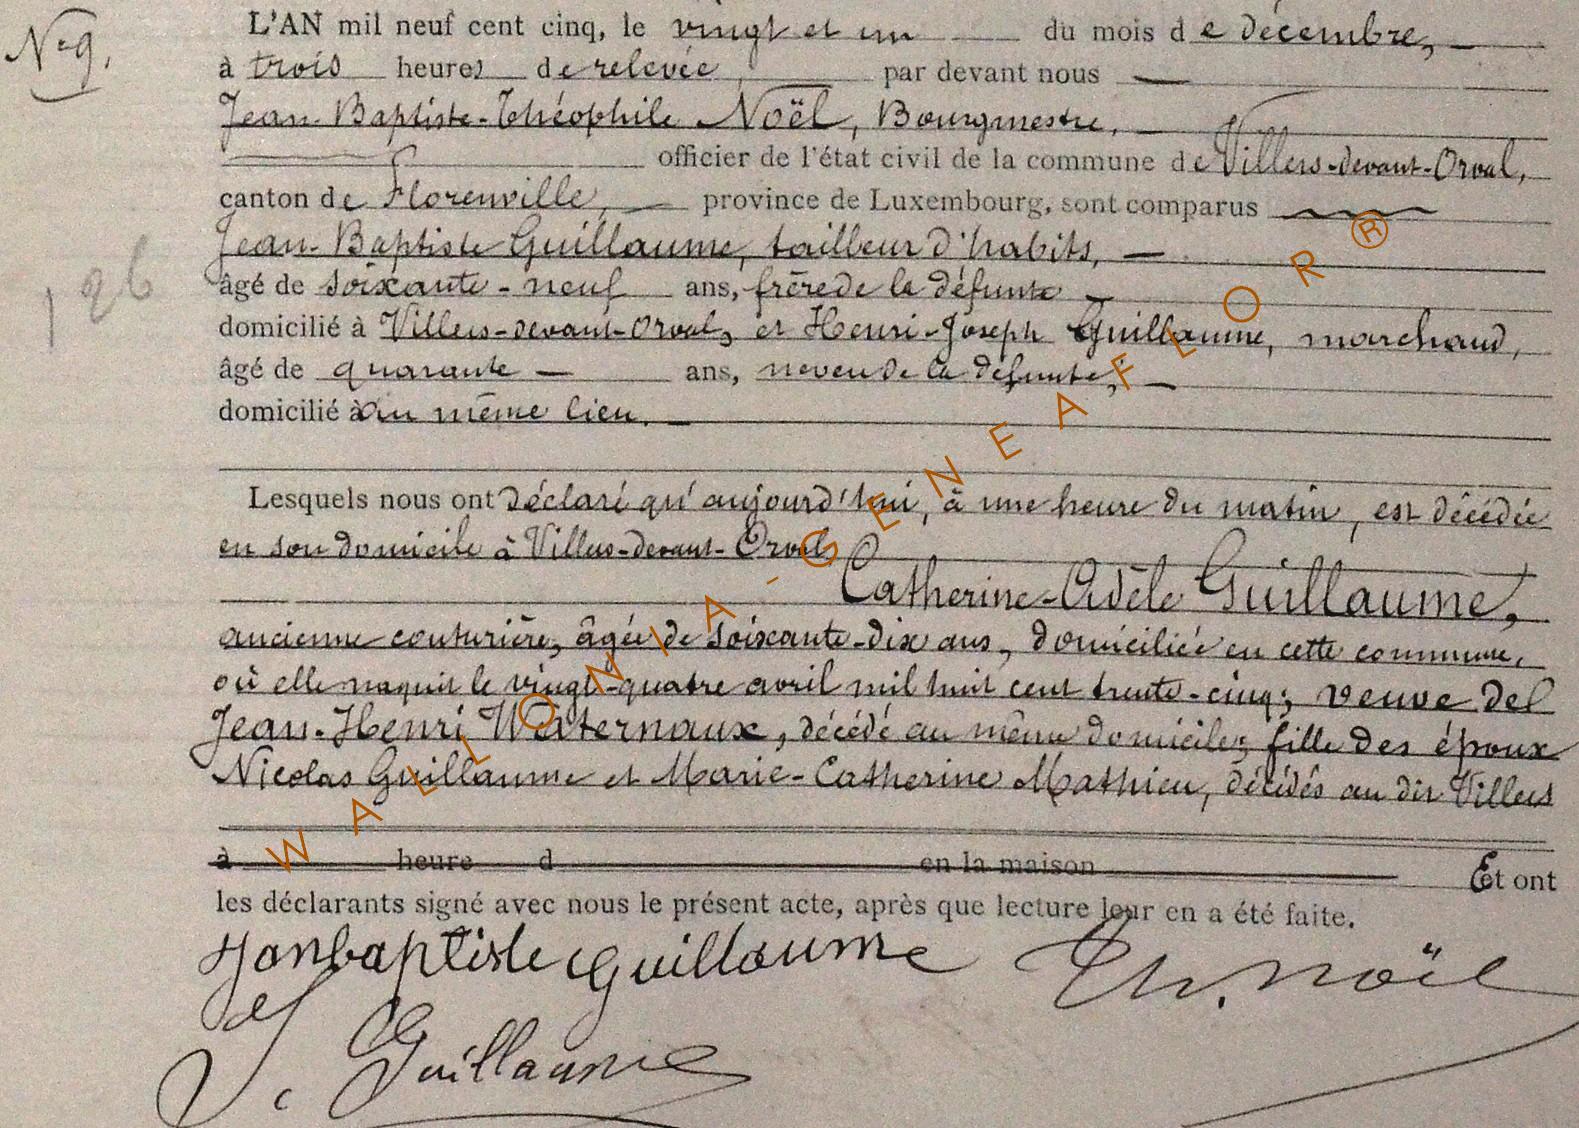 N° 9.
L'AN mil neuf cent cinq, le vingt et un du mois de décembre,
à trois heures de relevée, par devant nous
Jean-Baptiste-Théophile Noël, Bourgmestre,
officier de l'état civil de la commune de Villers-devant-Orval,
canton de Florenville, province de Luxembourg, sont comparus
Jean-Baptiste Guillaume, tailleur d'habits,
196
âgé de soixante-neuf ans, frère de la défunte
domicilié à Villers-devant-Orval, et Henri-Joseph Guillaume, marchand,
âgé de quarante ans, neveu de la défunte,
domicilié à au même lieu.
Lesquels nous ont déclaré qu'aujourd'hui, à une heure du matin, est décédée
en son domicile à Villers-devant-Orval
Catherine-Adèle Guillaume,
ancienne couturière, âgée de soixante-dix ans, domiciliée en cette commune,
où elle naquit le vingt-quatre avril mil huit cent trente-cinq; veuve de
Jean-Henri Waternaux, décédé au même domicile; fille des époux
Nicolas Guillaume et Marie-Catherine Mathieu, décédés au dit Villers
à heure d en la maison Et ont
les déclarants signé avec nous le présent acte, après que lecture leur en a été faite.
Janbaptiste Guillaume Th. Noël
Guillaume
WALLONIA-GENEAFLOR®